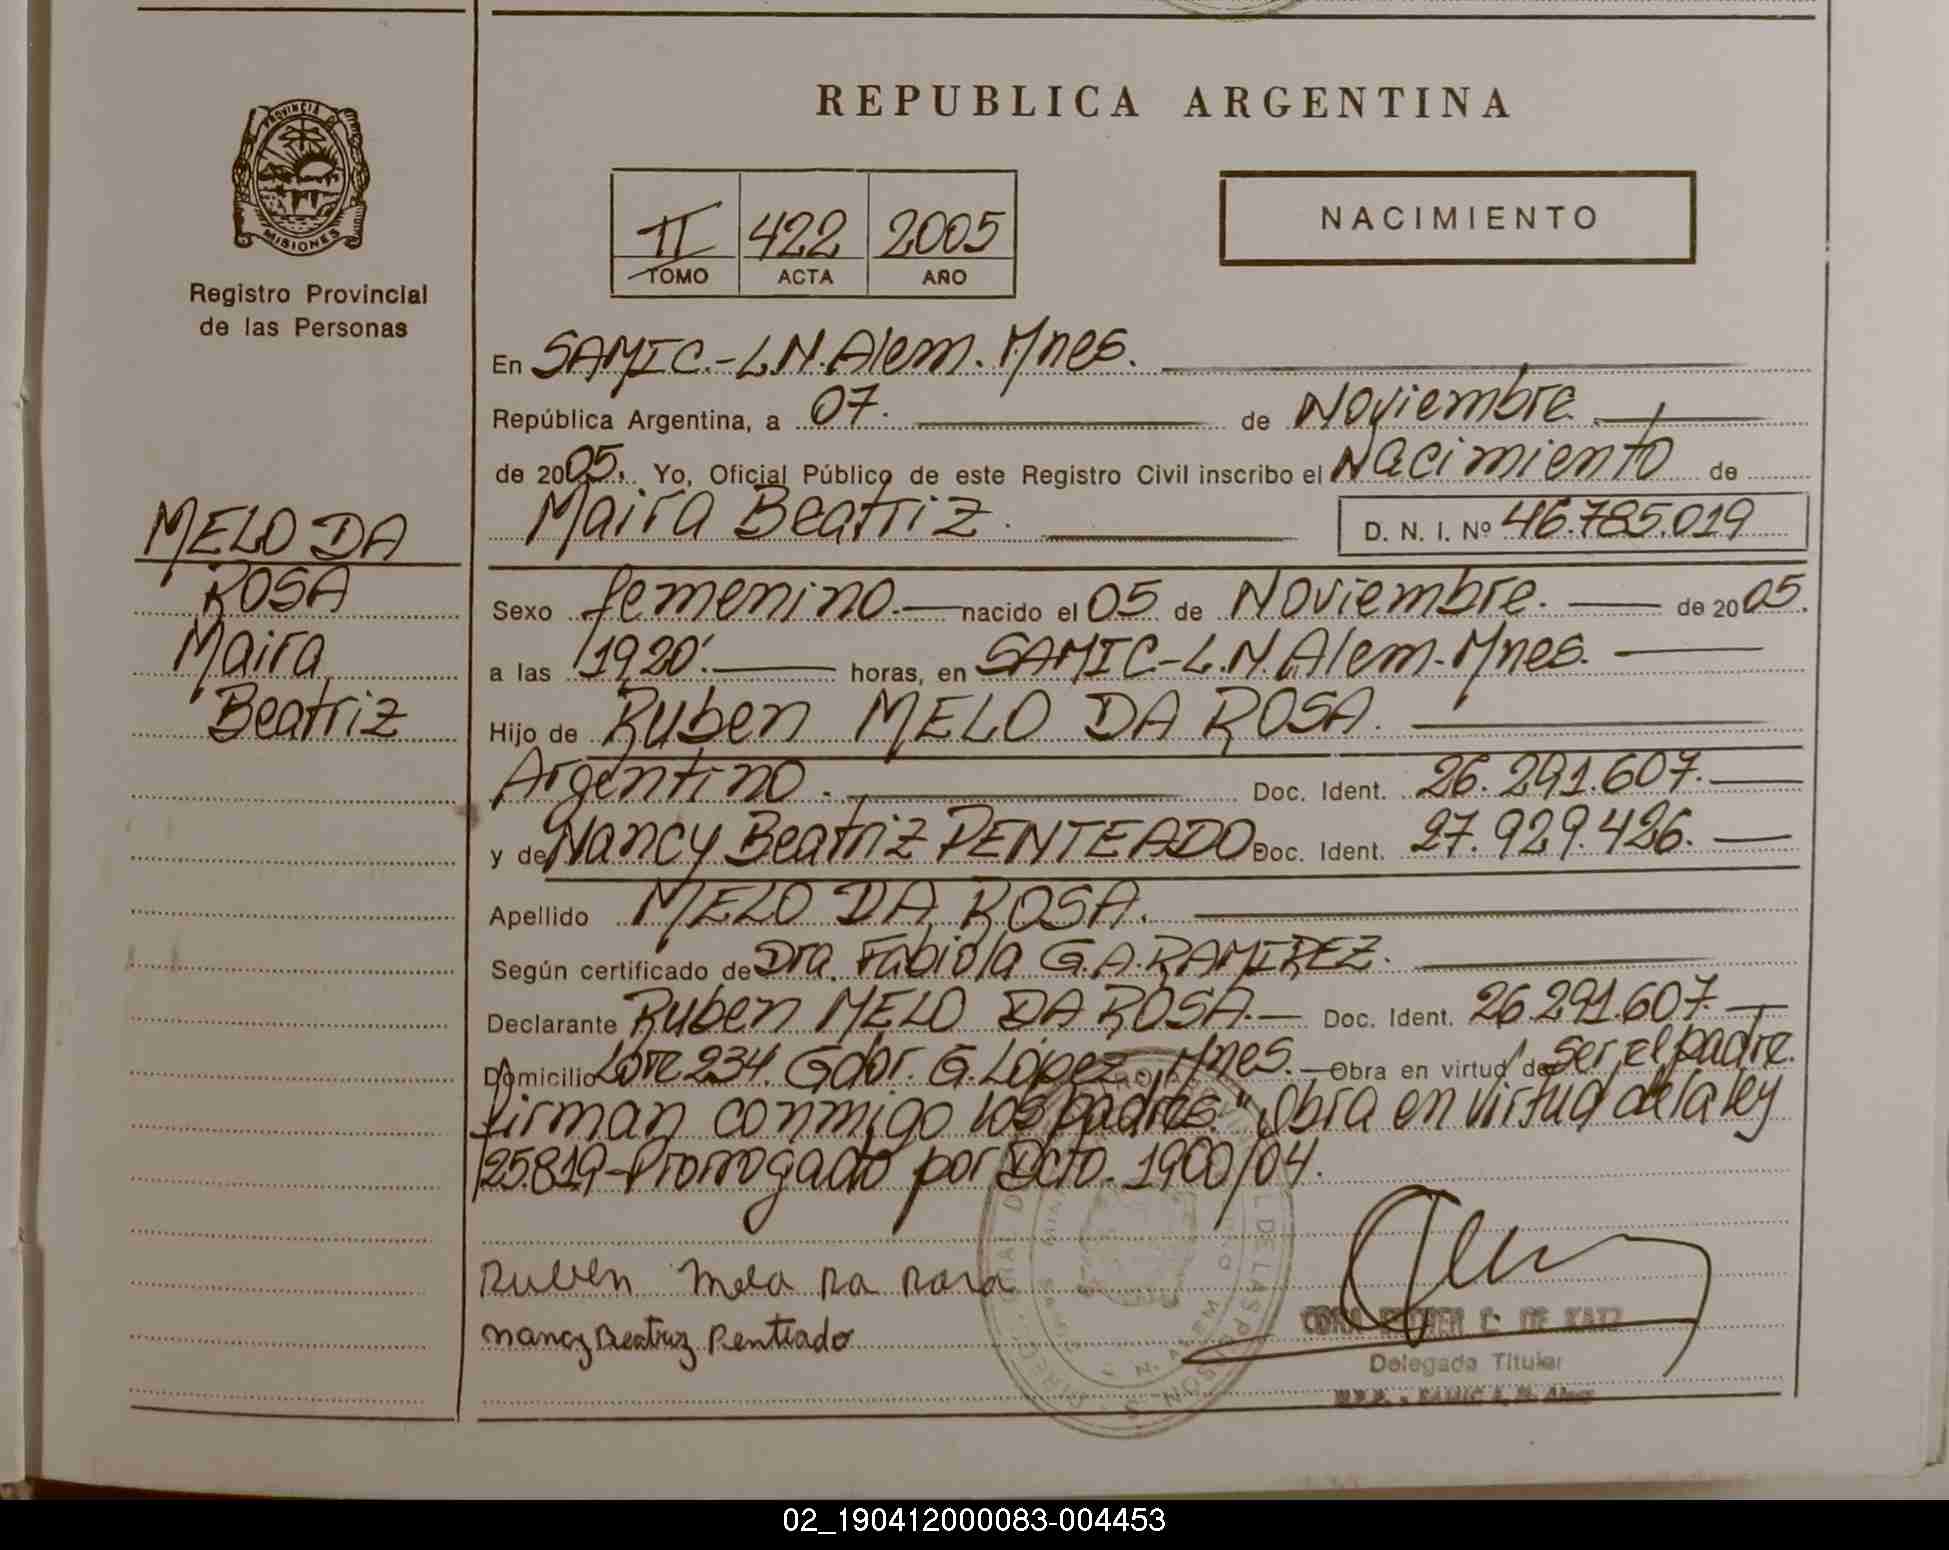 REPUBLICA ARGENTINA
PROVINCIA DE
MISIONES
Registro Provincial
de las Personas
II 422 2005
TOMO ACTA AÑO
NACIMIENTO
MELO DA
ROSA
Maira
Beatriz
En SAMIC.-L.N.Alem.Mnes.
República Argentina, a 07. de Noviembre
de 2005. Yo, Oficial Público de este Registro Civil inscribo el Nacimiento de
Maira Beatriz. D. N. I. Nº 46.785.019
Sexo femenino.- nacido el 05 de Noviembre. de 2005.
a las 1920'. horas, en SAMIC-L.N.Alem.Mnes.
Hijo de Ruben MELO DA ROSA.
Argentino. Doc. Ident. 26.291.607.
y de Nancy Beatriz PENTEADO Doc. Ident. 27.929.426.
Apellido MELO DA ROSA.
Según certificado de Dra. Fabiola G.A.RAMIREZ.
Declarante Ruben MELO DA ROSA.- Doc. Ident. 26.291.607.
Domicilio Lote 234. Gdor. G. López. Mnes. Obra en virtud de Ser el padre.
firman conmigo los padres." Obra en virtud de la ley
25.819-Prorrogado por Dcto. 1900/04.
Ruben Melo Da Rosa
Nancy Beatriz Penteado
C. DE KATZ
Delegada Titular
R.P.P. - SAMIC L. N. Alem
02_190412000083-004453